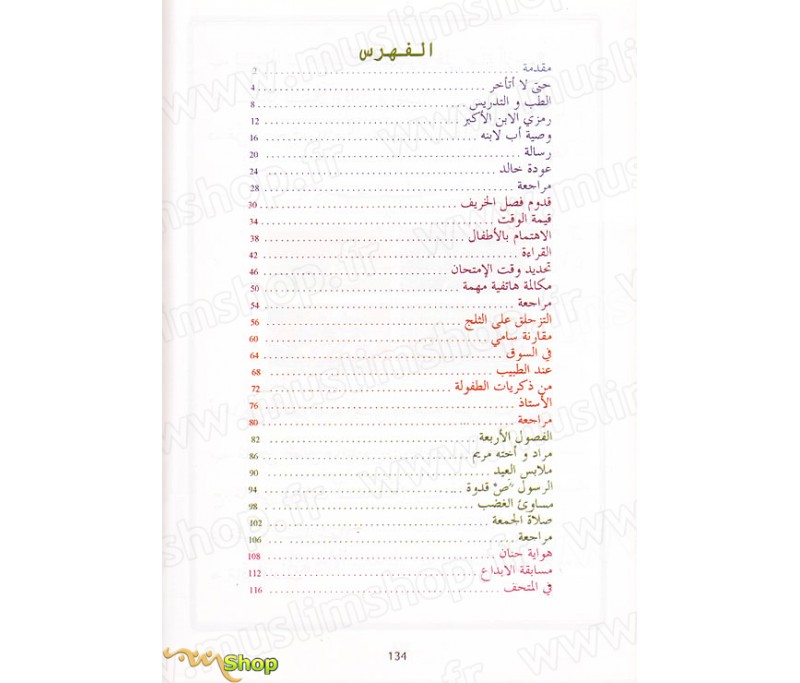 الفهرس
مقدمة ........ 2
حتى لا أتأخر ........ 4
الطب و التدريس ........ 8
رمزي الابن الأكبر ........ 12
وصية أب لابنه ........ 16
رسالة ........ 20
عودة خالد ........ 24
مراجعة ........ 28
قدوم فصل الخريف ........ 30
قيمة الوقت ........ 34
الاهتمام بالأطفال ........ 38
القراءة ........ 42
تحديد وقت الإمتحان ........ 46
مكالمة هاتفية مهمة ........ 50
مراجعة ........ 54
التزحلق على الثلج ........ 56
مقارنة سامي ........ 60
في السوق ........ 64
عند الطبيب ........ 68
من ذكريات الطفولة ........ 72
الأستاذ ........ 76
مراجعة ........ 80
الفصول الأربعة ........ 82
مراد و أخته مريم ........ 86
ملابس العيد ........ 90
الرسول "ص" قدوة ........ 94
مساوئ الغضب ........ 98
صلاة الجمعة ........ 102
مراجعة ........ 106
هواية حنان ........ 108
مسابقة الإبداع ........ 112
في المتحف ........ 116
134
Shop
www.muslimshop.fr